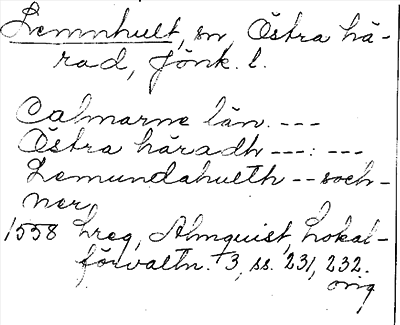 Lemnhult, sn, Östra hä-
rad, Jönk. l.
Calmarne län. ---
Östra häradh ---: ---
Lemundahulth -- soch-
ner
1558 Lreg, Almquist, Lokal-
förvaltn. 3, ss. 231, 232.
orig